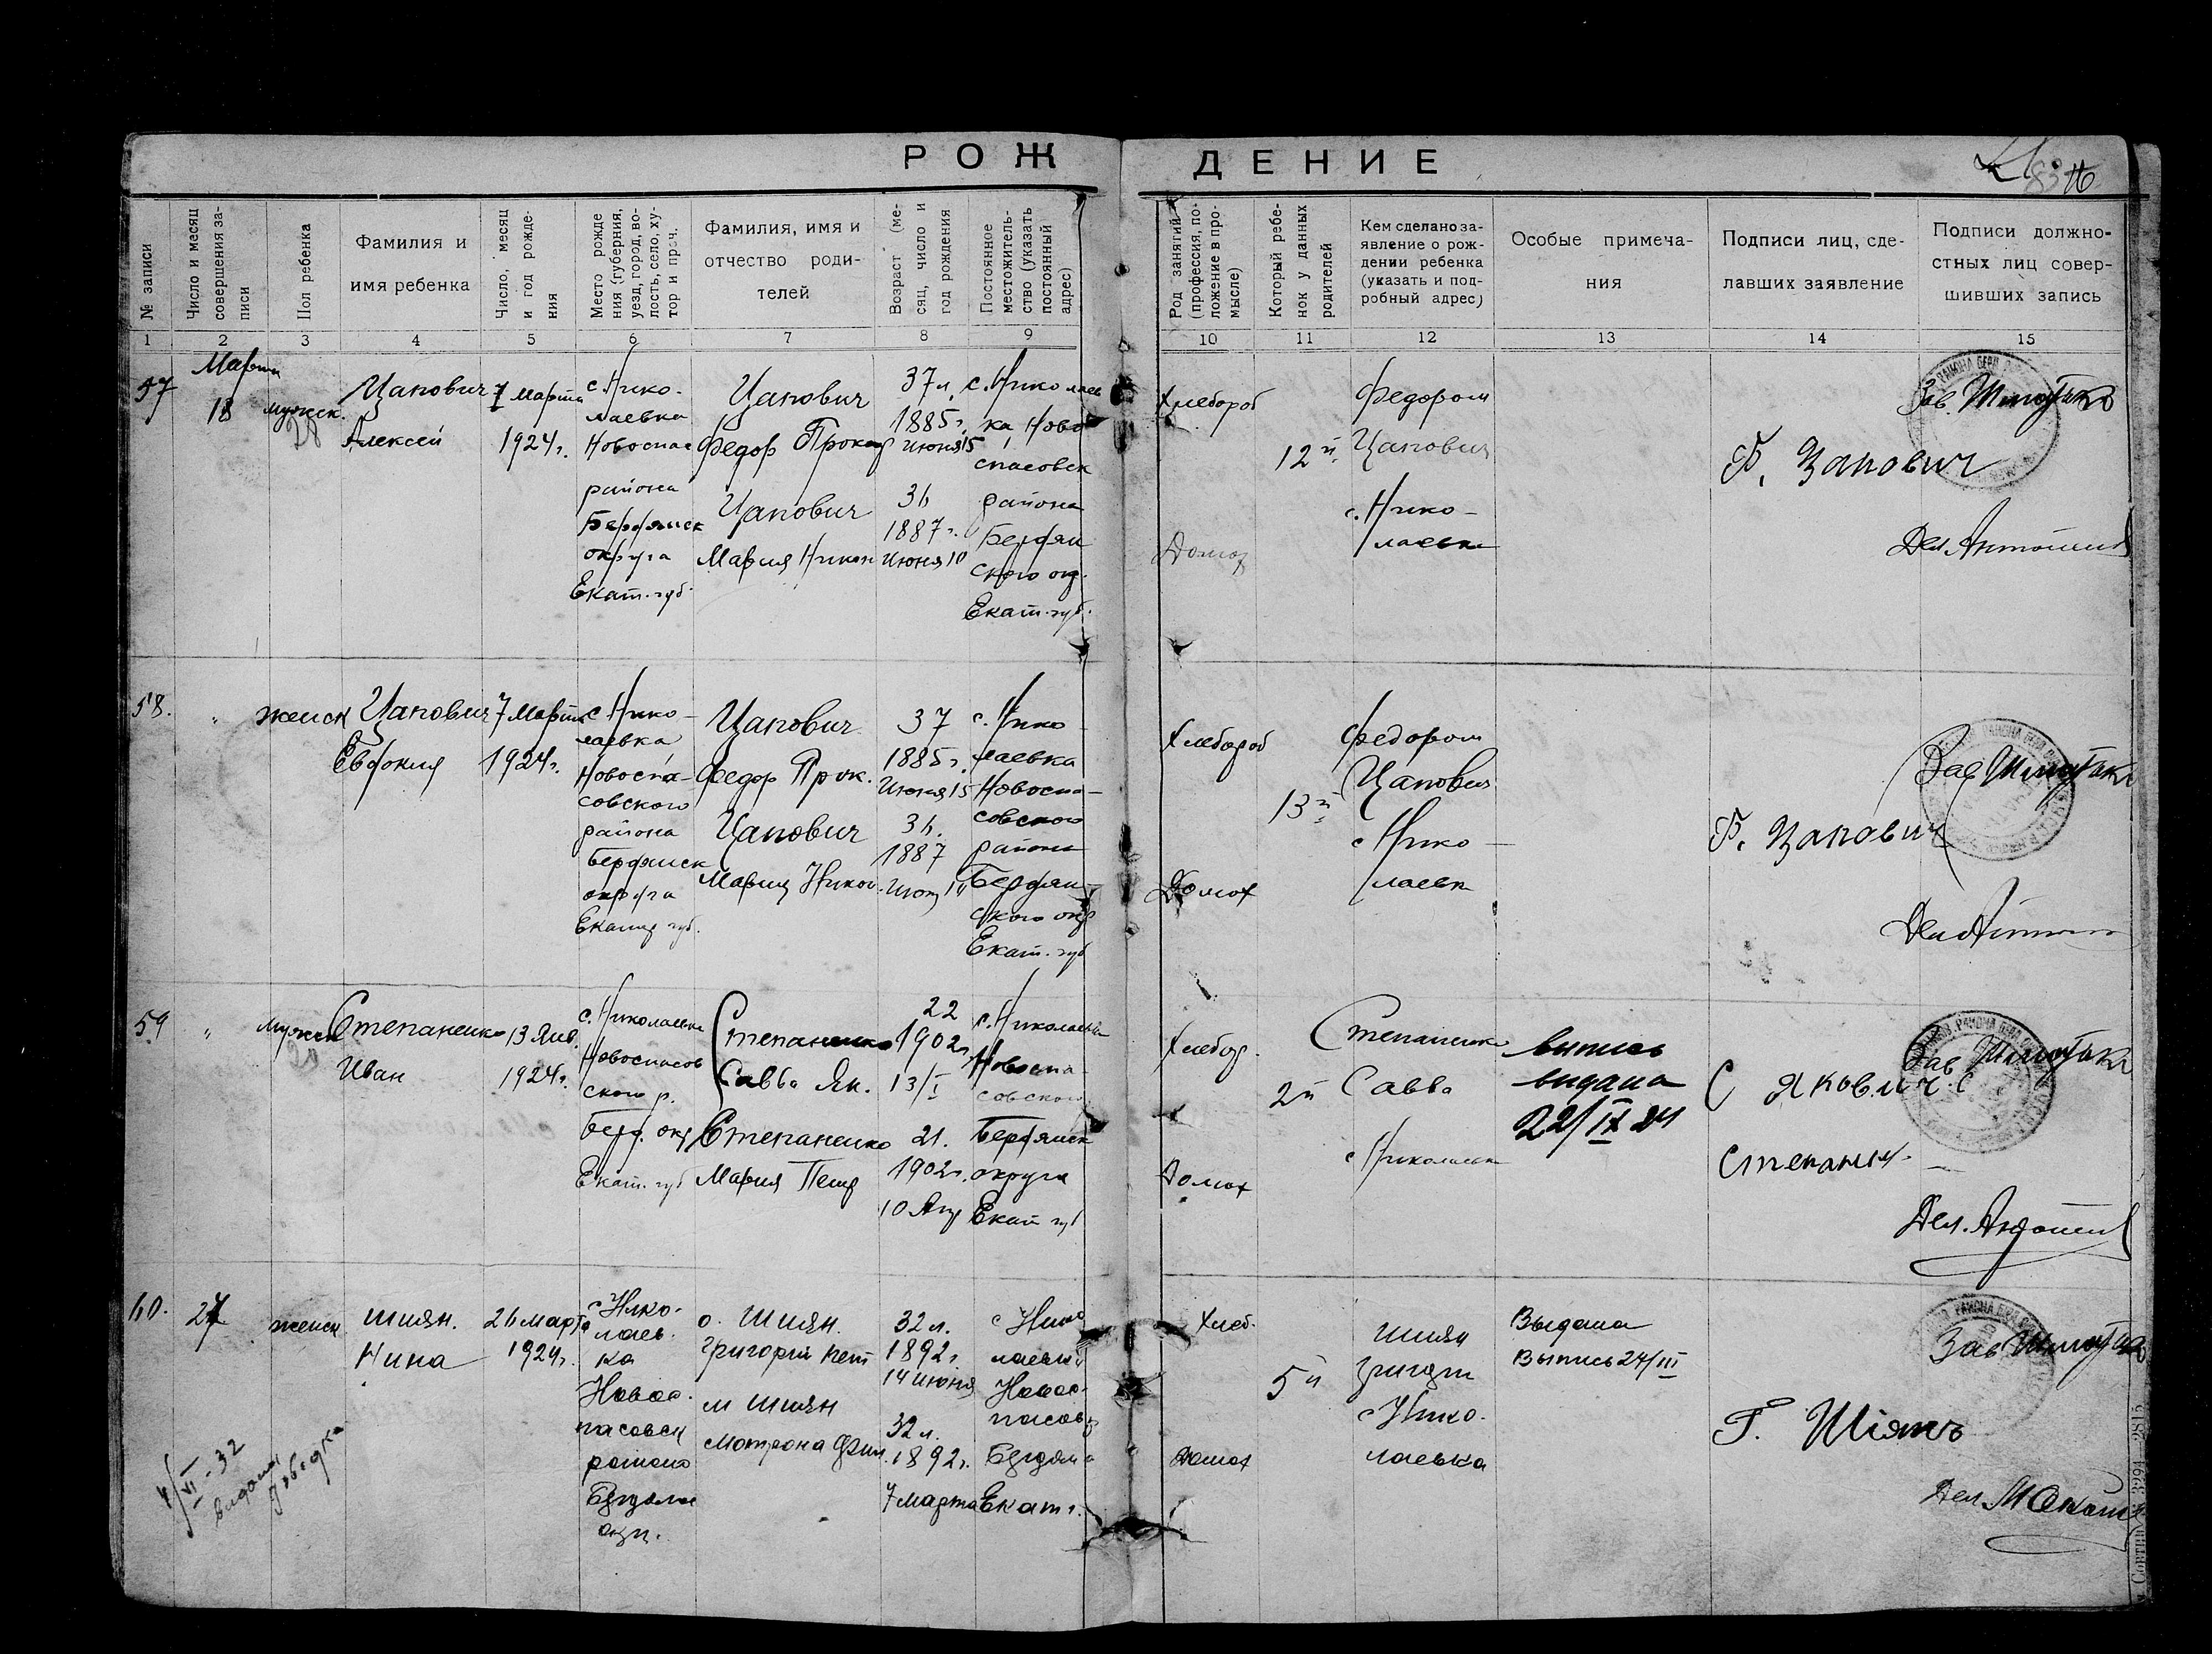 РОЖДЕНИЕ
№ записи
Число и месяц совершения за-
писи
Пол ребенка
Фамилия и
имя ребенка
Число, месяц
и год рожде-
ния
Место рожде
ния (губерния,
уезд, город, во-
лость, село, ху-
тор и проч.
Фамилия, имя и
отчество роди-
телей
Возраст (ме-
сяц, число и
год рождения
Постоянное
местожитель-
ство (указать
постоянный
адрес)
Род занятий
(профессия, по-
ложение в про-
мысле)
Который ребе-
нок у данных
родителей
Кем сделано за-
явление о рож-
дении ребенка
(указать и под-
робный адрес)
Особые примеча-
ния
Подписи лиц, сде-
лавших заявление
Подписи должно-
стных лиц совер-
шивших запись
1 2 3 4 5 6 7 8 9 10 11 12 13 14 15
57
Марта
18
мужск.
28
Цапович
Алексей
7 марта
1924г.
с. Нико-
лаевка
Новоспас
района
Бердянск
округа
Екат. губ.
Цапович
Федор Прокоф
Цапович
Мария Никон
37 л.
1885г.
Июня 15
36
1887г.
Июня 10
с. Николаев
ка, Ново
спасовск
района
Бердян
ского окр.
Екат. губ.
Хлебороб
Домох
12й
Федором
Цапович
с. Нико-
лаевка
Ф. Цапович
Зав.
Дел.
58.
"
женск
Цапович
Евдокия
7 Марта
1924г.
с Нико-
лаевка
Новоспа-
совского
района
Бердянск
округа
Екатер губ.
Цапович
Федор Прок.
Цапович
Мария Никон
37
1885г.
Июня 15
36.
1887
Июня 10
с. Нико
лаевка
Новоспа-
совского
района
Бердян-
ского окр
Екат. губ
Хлебороб
Домох
13й
Федором
Цапович
с Нико-
лаевк
Ф. Цапович
Зав
Дел
59
"
мужск
Степаненко
Иван
13 Янв.
1924г.
с. Николаевка
Новоспасов
ского р.
Берд. окр
Екат. губ
Степаненко
Савва Як.
Степаненко
Мария Петр
22
1902г.
13/I
21.
1902г.
10 Апр
с. Николаевка
Новоспа-
совского
Бердянск
округа
Екат губ
Хлебор.
Домох
2й
Степаненко
Савва
с Николаевка
выпись
видана
22/IX 24
С Яковлич. С
Степанен.
Зав
Дел.
60.
27
женск
Шиян.
Нина
26 марта
1924г.
с Нико-
лаев.
ка
Новос-
пасовск
района
Бердянс
окр.
о. Шиян.
Григорий Пет
м Шиян
Мотрона Фил.
32 л.
1892г.
14 июня
32 л.
1892г.
7 марта
с Нико
лаевка
Новос-
пасов
Бердян
Екат г.
Хлеб.
Домох
5й
Шиян
Григори
с Нико.
лаевка
Выдана
Выпись 24/III
Г. Шіянъ
Зав
Дел
4/VI-32
видана